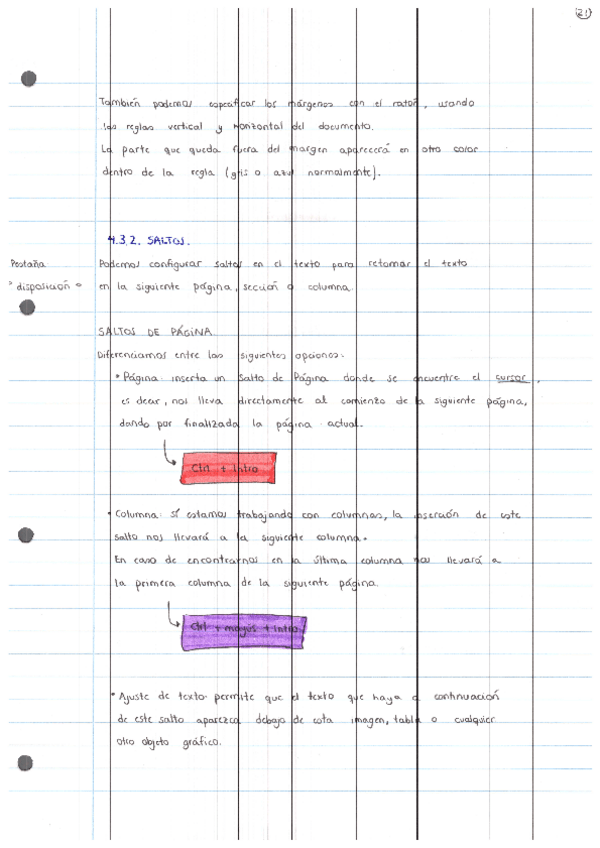 21
También podemos especificar los márgenes con el ratón, usando
las reglas vertical y horizontal del documento.
La parte que queda fuera del margen aparecerá en otro color
dentro de la regla (gris o azul normalmente).
4.3.2. SALTOS.
Pestaña
"disposición"
Podemos configurar saltos en el texto para retomar el texto
en la siguiente página, sección o columna.
SALTOS DE PÁGINA.
Diferenciamos entre las siguientes opciones:
• Página: inserta un Salto de Página donde se encuentre el cursor,
es decir, nos lleva directamente al comienzo de la siguiente página,
dando por finalizada la página actual.
Ctrl + Intro
• Columna: si estamos trabajando con columnas, la inserción de este
salto nos llevará a la siguiente columna.
En caso de encontrarnos en la última columna nos llevará a
la primera columna de la siguiente página.
Ctrl + mayús + Intro
• Ajuste de texto: permite que el texto que haya a continuación
de este salto aparezca debajo de esta imagen, tabla o cualquier
otro objeto gráfico.